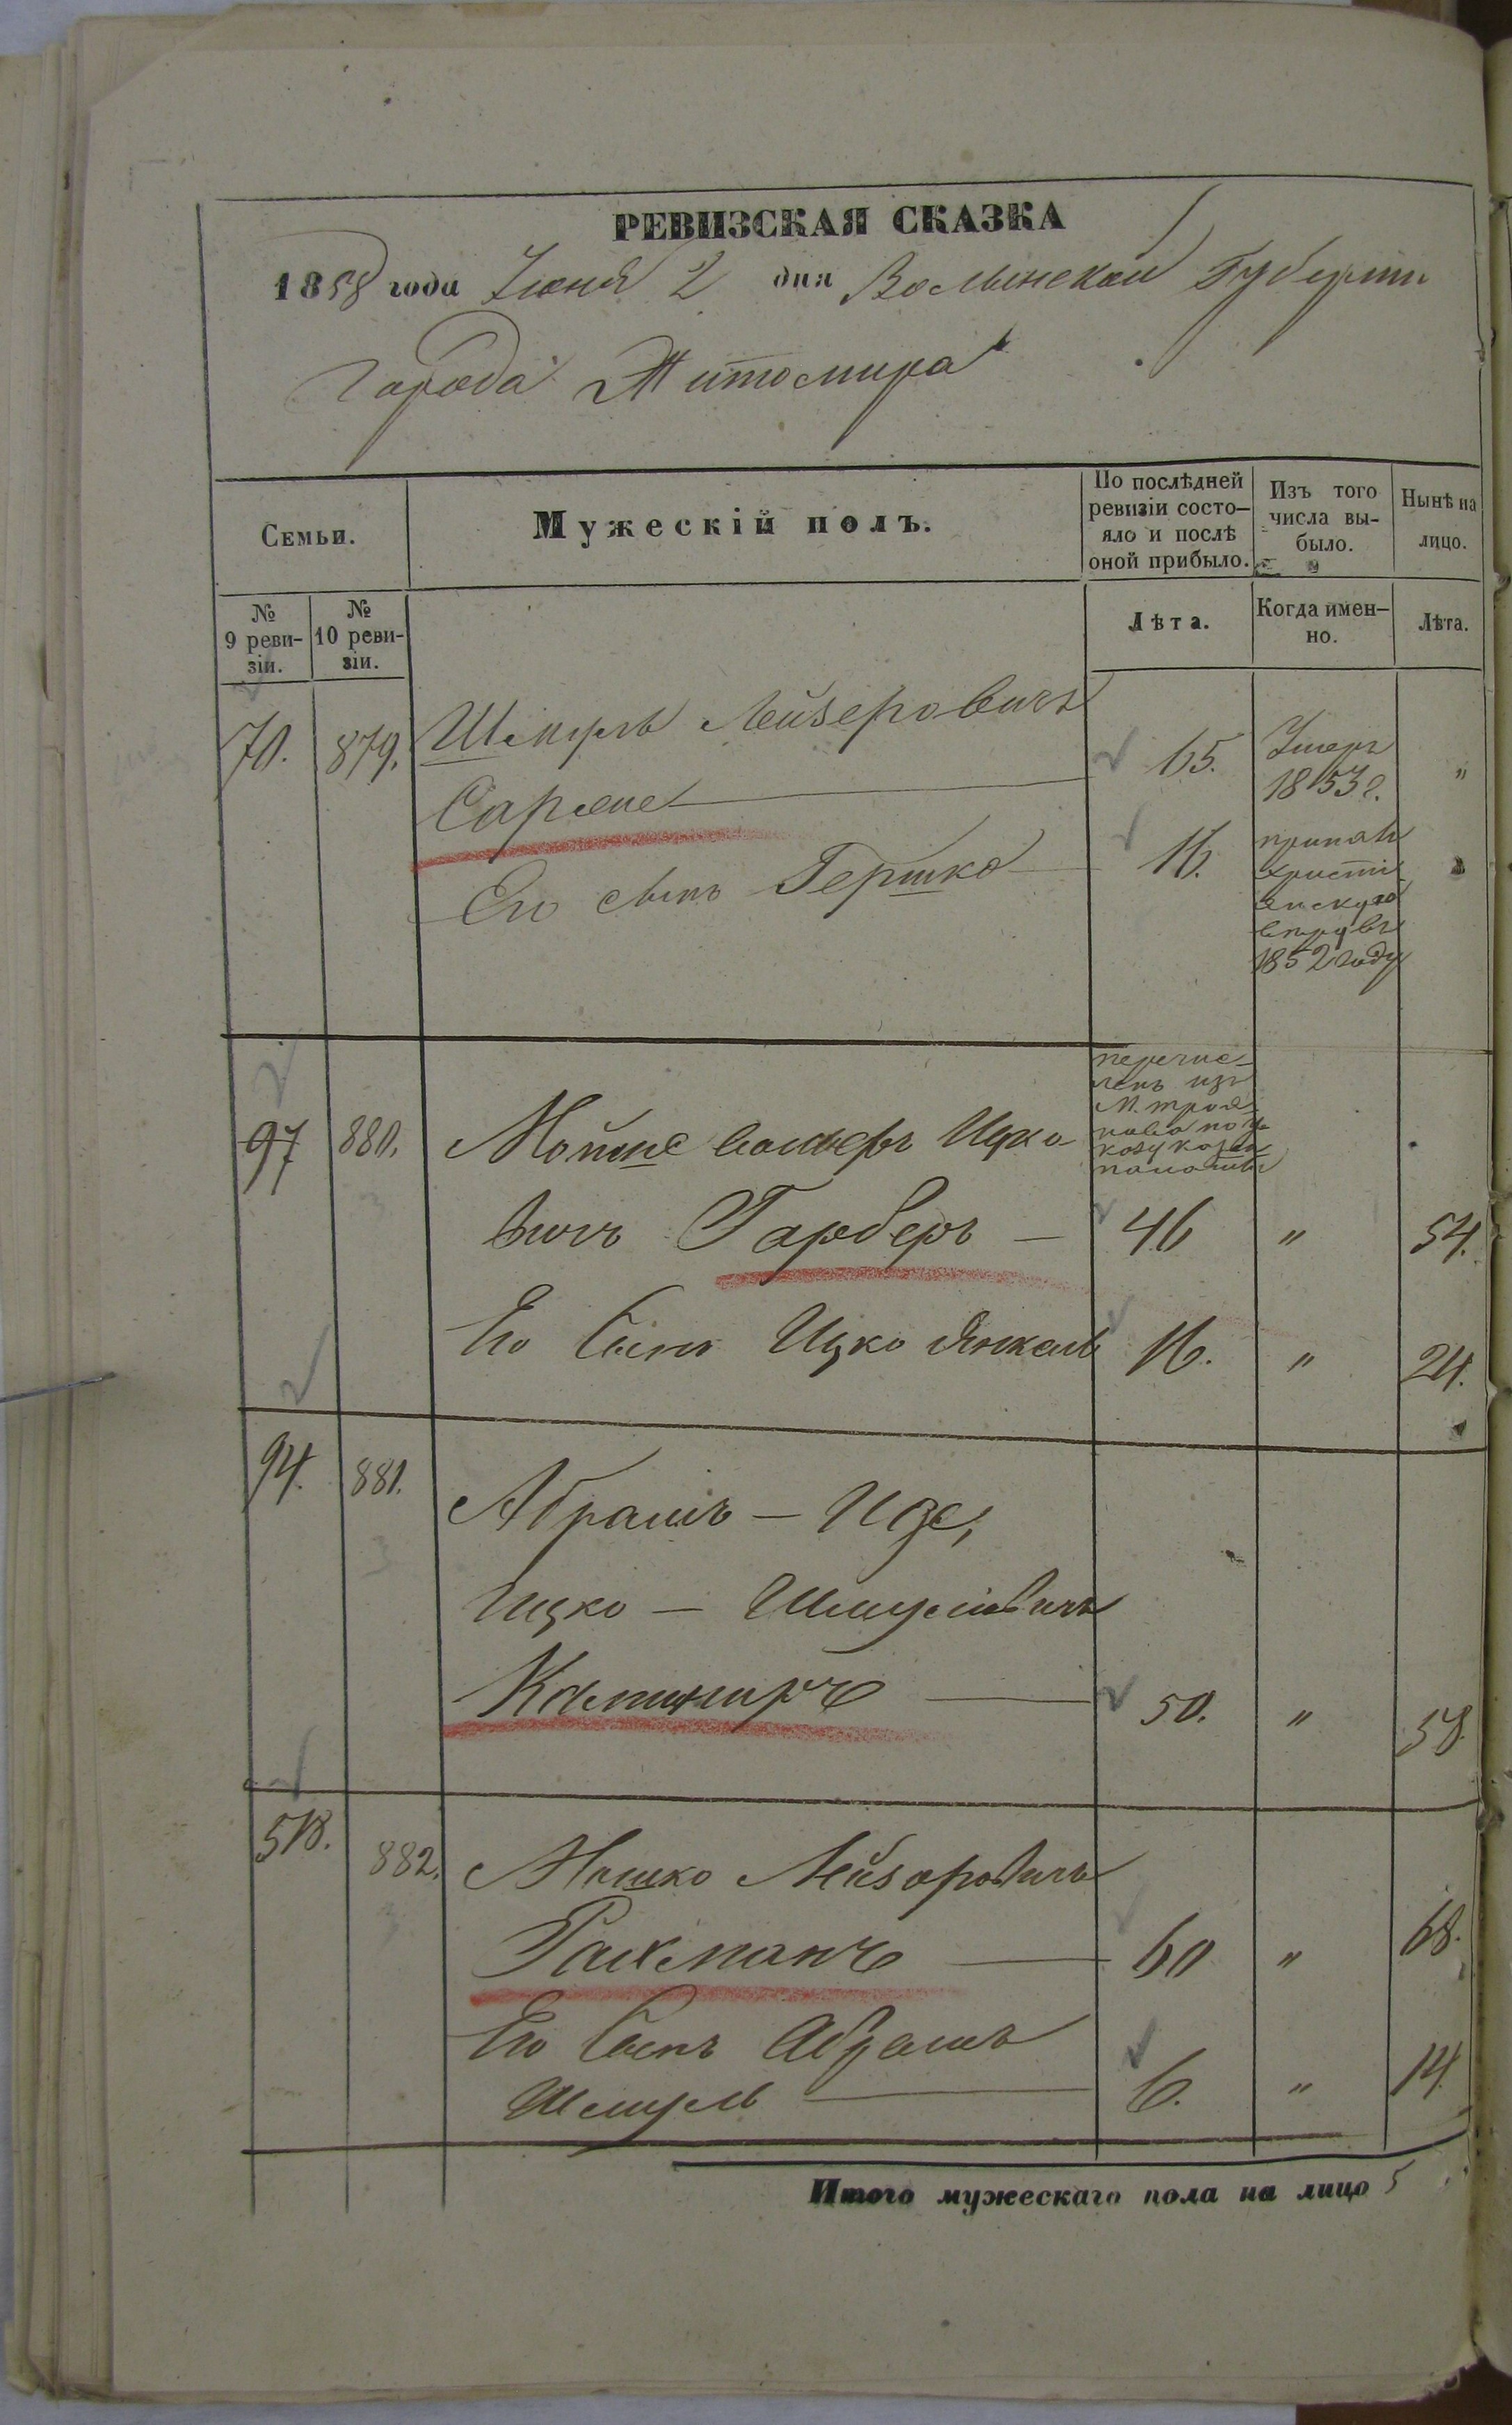 РЕВИЗСКАЯ СКАЗКА
1858 года Июня 2 дня Волынской Губерніи
Города Житомира
Семьи.
Мужескій полъ.
По послѣдней ревизіи состо-
яло и послѣ
оной прибыло.
Изъ того
числа вы-
было.
Нынѣ на
лицо.
№
9 реви-
зіи.
№
10 реви-
зіи.
Лѣта.
Когда имен-
но.
Лѣта.
70. 879. Шмуль Лейзеровичъ
65. Умеръ
1853 г. "
Его сынъ Гершко 16.
принялъ
христі
анскую
вѣру въ
1852 году
перечис-
ленъ изъ
М. троя-
нова по у-
казу казен
палаты
97 880. Мойше Вольфъ Ицко
вичъ Гарберъ — 46 " 54.
Его Сынъ Ицко Янкель 16. " 24.
94. 881. Абрамъ —
Ицко — Шмулiовичъ
50. " 58.
518. 882. Мошко Лейзоровичъ
Рахманъ 60 " 68.
Его Сынъ Абрамъ
Шмуль 6. " 14.
Итого мужескаго пола на лицо 5